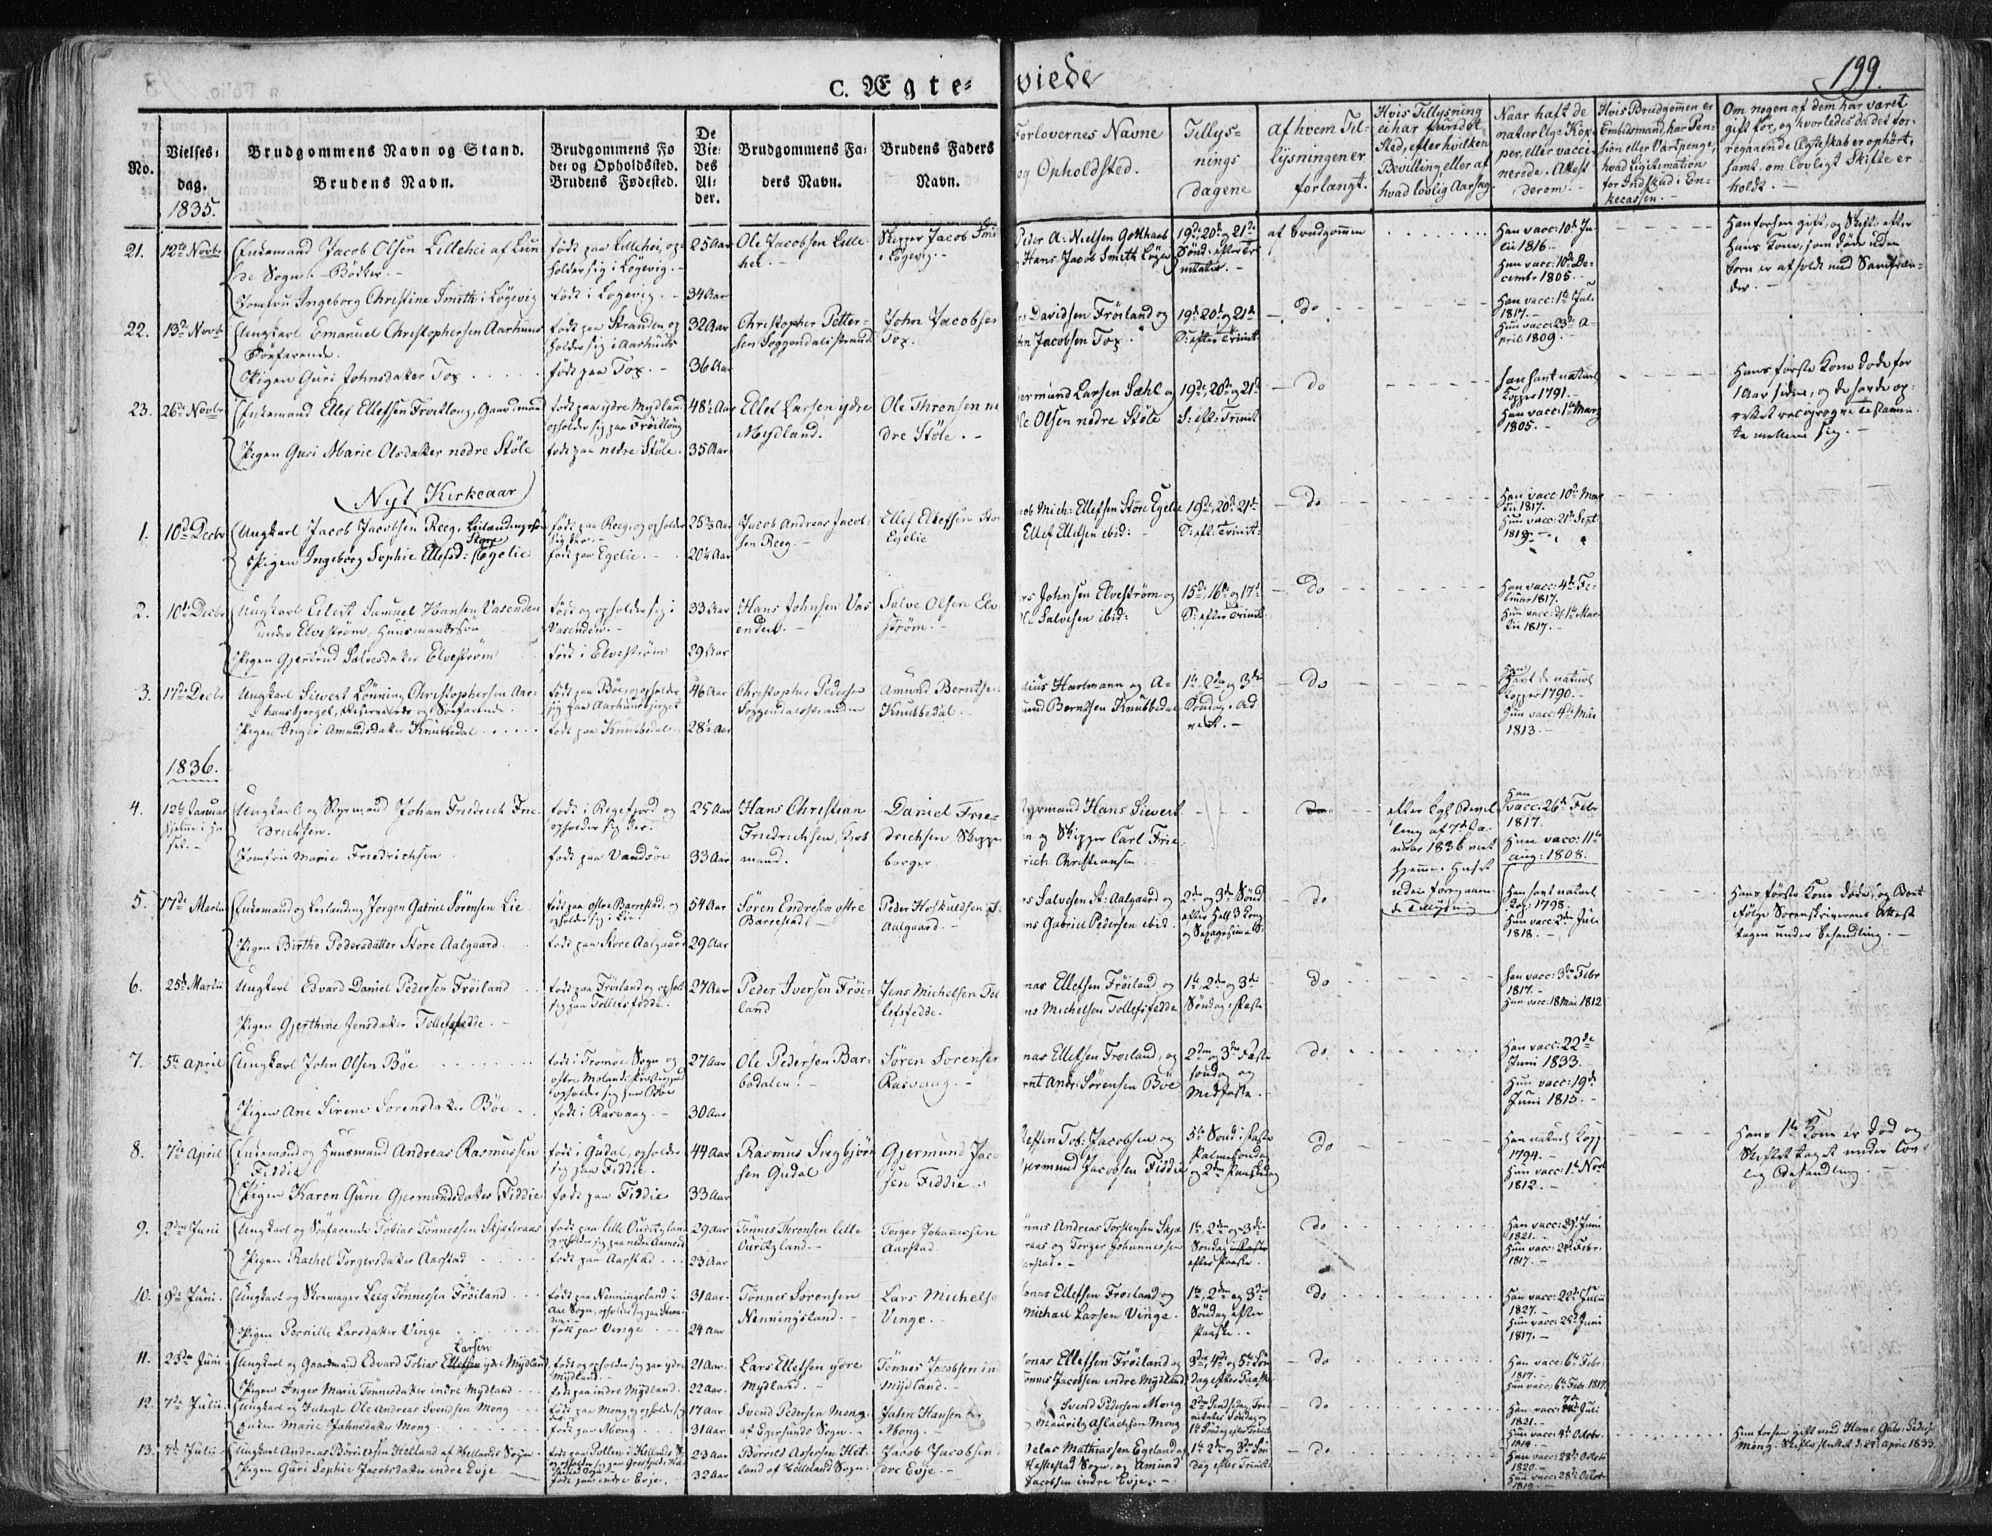 C. Ægte-
viede
199.
No.
Vielses-
dag.
1835.
Brudgommens Navn og Stand.
Brudens Navn.
Brudgommens Fø
de: og Opholdssted.
Brudens Fødested.
De
Vie-
des
Al-
der.
Brudgommens Fa-
ders Navn.
Brudens Faders
Navn.
Forlovernes Navne
og Opholdsted.
Tillys-
nings
dagene
af hvem Til-
lysningen er
forlangt.
Hvis Tillysning
ei har fundet
Sted, efter hvilken
Bevilling eller af
hvad lovlig Aarsag.
Naar haft de
naturlige Kop-
per, eller vacci-
nerede. Attest
derom.
Hvis Brudgommen er
Embedsmand, har Pen-
sion eller Vartpenge,
hvad Legitimation
for Indskud i En-
kecassen.
Om nogen af dem har været
gift før, og hvorledes da det for-
regaaende Ægteskab er ophørt,
samt om lovligt Skifte er
holdt.
21. 12te Novbr
Enkemand Jacob Olsen Lillehei af Lun
de Sogn Bødker.
Jomfru Ingeborg Christine Smith i Løgevig
født paa Lillehei, op-
holder sig i Løgevig.
født i Løgevig.
25 Aar
34 Aar
Ole Jacobsen Lille-
hei.
Skipper Jacob Smi
i Løgevig.
Peder A: Nielsen Gotthaab
Hans Jacob Smith Løgev
19de, 20de og 21de
Sønd: efter Tri
nitatis.
af Brudgommen
Han vacc: 10de Ju-
lii 1816.
Hun vacc: 10de De-
cember 1805.
Han forhen gift, og Skifte efter
Hans Kone, som døde uden
Born er afholdt med Samfræn-
der.
22. 13de Novbr
Ungkarl Emanuel Christophersen Aarhuus
Søefarende.
Pigen Guri Johnsdatter Tox
født paa Stranden op
holder sig i Aarhuus
født paa Tox.
32 Aar
36 Aar
Christopher Petter-
sen Soggendalsstrand.
John Jacobsen
Tox.
Davidsen Frøiland og
Jacobsen Tox.
19de 20de og 21de
S: efter Trinit.
do
Han vacc: 1ste Juli
1817.
Hun vacc: 23de A-
pril 1809.
23. 26de Novbr
Enkemand Ellef Ellefsen Frøitlong, Gaardmand
Pigen Guri Marie Olsdatter nedre Støle
født paa ydre Mydland
opholder sig paa Frøitlong
født paa nedre Støle.
48½ Aar
35 Aar
Ellef Larsen ydre
Mydland.
Ole Thronsen ne
dre Støle.
Larsen Sæhl og
Ole Olsen nedre Støle
19de, 20de og 21de
S: eft: Trinit
do
han havt naturl
Kopper 1791.
Hun vacc: 1ste Marz
1805.
Hans første Kone døde for
1 Aar siden, og de havde op-
rettet reciproque testamen-
te mellem sig.
Nyt Kirkeaar
1. 10de Decbr
Ungkarl Jacob Jacobsen Reeg, Leilændingssøn
Pigen Ingeborg Sophie Ellefsd: Store Egelie
født paa Reeg, og opholder
sig der.
født paa Egelie.
25½ Aar
20¼ Aar
Jacob Andreas Jacob-
sen Reeg.
Ellef Ellefsen Sto
Egelie
Mich: Ellefsen Store Egelie
Ellef Ellefsen ibid:
19de, 20de 21de
S: eft: Trinit:
do
Han vacc 10de Mar
tii 1817.
Hun vacc: 21de Sept
1819.
2. 10de Decbr
Ungkarl Eilert Samuel Hansen Vasenden
under Elvestrøm, Huusmandssøn
Pigen Gjertrud Salvesdatter Elvestrøm
Født og opholder sig i
Vasenden.
født i Elvestrøm
33 Aar
29 Aar
Hans Johnsen Vas
enden.
Salve Olsen Elv
strøm.
Johnsen Elvestrøm og
Salvesen ibid:
15de, 16de og 17de
S: efter Trinit.
do
Han vacc: 4de Fe-
bruar 1817.
Hun vacc: d 1ste Mar-
tii 1817.
3. 17de Decbr
Ungkarl Siewert Lønning Christophersen Aar-
huustjorgel, Skibsreder og Søefarende.
Pigen Inger Amundsdatter Knubbedal
født paa Bøe, og opholder
sig paa Aarhuus
født paa Knubbedal
46 Aar
28½ Aar
Christopher Pedersen
Soggendalsstranden
Amund Berntsen
Knubbedal.
Hartmann og A-
mund Berntsen Knubbedal
1ste, 2den og 3de
Søndag i Ad-
vent.
do
Han
havt de naturl
Kopper 1790.
Hun vacc: 4de Mai
1813.
1836.
4. 12te Januar
hjemme i Hu-
set.
Ungkarl og Styrmand Johan Friedrich Frie-
drichsen.
Jomfru Marie Friedrichsen
født i Regefjord og
opholder sig der.
født paa Vandsøe
25 Aar
33 Aar
Hans Christian
Friedrichsen, Styr
mand.
Daniel Frie-
drichsen Skippe
borger.
Styrmand Hans Siewert
og Skipper Carl Frie-
rich Christiansen
do
efter Kgl: Bevil
ling af 7de Ja-
nuar 1836 viet
hjemme i Huset
uden foregaaen-
de Tillysning
Han
vacc: 26de Febr
1817.
Hun vacc: 11te
Aug: 1808.
5. 17de Martii
Enkemand og Leilænding Jørgen Gabriel Sørensen Lie
Pigen Birthe Pedersdatter Store Aalgaard
født paa østre Barrestad, og
opholder sig i Lie.
født paa Store Aalgaard
54 Aar
29 Aar
Søren Endresen østre
Barrestad
Peder Hoskuldsen S
Aalgaard.
Salvesen St: Aalgaard og
Gabriel Pedersen ibid.
2den og 3de Sønd
efter Hell 3 Kong
og Sexagesima S:
do
Han havt naturl
Kop: 1798.
Hun vacc 2den Juli
1818.
Hans første Kone døde, og Boet
ifølge Sorenskriverens Attest
tagen under Behandling.
6. 25de Martii
Ungkarl Edvard Daniel Pedersen Frøiland
Pigen Gjerthine Jensdatter Tollefsfedde.
født paa Frøiland og ophol
sig paa Tollefsfedde.
27 Aar
Peder Iversen Frøi-
land
Jens Michelsen Tol
lefsfedde.
Jonas Ellefsen Frøiland og
Jens Michelsen Tollefsfedde
1ste, 2den og 3de
Søndag i Faste
do
han vacc: 3de Febr
1817.
Hun vacc: 18 Mai 1812
7. 5te April
Ungkarl John Olsen Bøe
Pigen Ane Sirene Sørensdatter Bøe
født i Tromøe Sogn og
østre Molands Præstegjeld
opholder sig paa Bøe
født i Rasvaag.
27 Aar
30 Aar
Ole Pedersen Bar-
bodalen.
Søren Sørensen
Rasvaag.
Jonas Ellefsen Frøiland, og
Bernt Andr: Sørensen Bøe
2den og 3de Faste
søndag og
Midfaste.
do
Han vacc: 22de
Juni 1833.
Hun vacc: 19de
Juni 1815.
8. 7de April
Enkemand og Huusmand Andreas Rasmussen
Fiddie
Pigen Karen Gurie Gjermundsdatter Fiddie
født i Gudal, opholder
sig paa Fiddie.
født paa Fiddie
44 Aar
33 Aar
Rasmus Sigbjørn
sen Gudal
Gjermund Jaco
sen Fiddie.
Steffen Tob: Jacobsen og
Gjermund Jacobsen Fiddie
5te Sønd i Faste
Palmesøndag
og 2den Paaskedag
do
Han naturl Kopp
1794.
Hun vacc: 1ste Nov
1812.
Hans 1ste Kone er død og
Skiftet taget under lov-
lig Behandling.
9. 2den Junii
Ungkarl og Søefarende Tobias Tønnessen Skjæveraas
Pigen Rachel Torgersdatter Aarstad
født paa Lille Ouritzland
opholder sig paa nedre Aamodt
født paa Aarstad
29 Aar
23 Aar
Tønnes Thronsen lille
Ouritzland.
Torger Johannessen
Aarstad.
Tønnes Andreas Torstensen Skjæ
raas og Torger Johannessen
Aarstad.
1ste, 2den og 3de
Søndag i Faste
efter Paaske.
do
Han vacc: 29de Juni
1821.
Hun vacc: 24de Febr.
1817.
10. 9de Juni
Ungkarl og Skomager Leeg Tønnessen Frøiland
Pigen Pernille Larsdatter Vinge
født paa Nenningsland i
Aae Sogn, opholder sig paa
født paa Vinge
31 Aar.
24 Aar
Tønnes Sørensen
Nenningsland.
Lars Michelse
Vinge.
Jonas Ellefsen Frøiland og
Michael Larsen Vinge.
1ste, 2den og 3die
Søndag efter
Paaske.
do
Han vacc: 22de Julii
1827.
Hun vacc: 25de Juni
1817.
11. 25de Juni
Ungkarl og Gaardmand Edvard Tobias Ellefsen Larsen ydre Mydland
Pigen Anger Marie Tønnesdatter indre Mydland
født og opholder sig paa ydre
Mydland.
født paa indre Mydland.
21 Aar.
22 Aar.
Lars Ellefsen ydre
Mydland.
Tønnes Jacobsen in
Mydland.
Jonas Ellefsen Frøiland og
Tønnes Jacobsen indre Mydland
3die, 4de og 5te Søn
dag efter Paaske
do
Han vacc: 6te Febr:
1817.
Hun vacc: 6te Febr. 1817.
12. 7de Julii
Ungkarl og Ole Andreas Svendsen Mong
Enken Marie Jahnsdatter Mong
født paa Mong, opholder sig
født paa Mong.
17 Aar
31 Aar
Svend Pedersen Mong
af Egersunds Sogn
Jahn Hansen
Mong.
Svend Pedersen Mong
Mauritz Aslachsen Mong
Han vacc: Juli
1821.
Hun vacc: 4de Octobr.
1814.
Hun forhen gift med Hans Gabr: Peders
Mong. Skifte sluttet d. 24 April 1833.
13. 8de Julii
Ungkarl Andreas Børrildsen Hetland af Hetlands Sogn
Pigen Guri Sophie Jacobsdatter indre Eeje
født paa indre Eeje.
23 Aar
32 Aar
Børrild Assersen Het-
land af Hetland Sogn.
Jacob Jacobsen
dre Eeje.
Mathiassen Egeland af
Heskestad Sogn, og Amund
Jacobsen indre Eeje.
1ste 2den og 3die Søn
dag efter Trinit.
do
Han vacc: 28de Octobr
1820.
Hun vacc: 28de Octobr
1819.